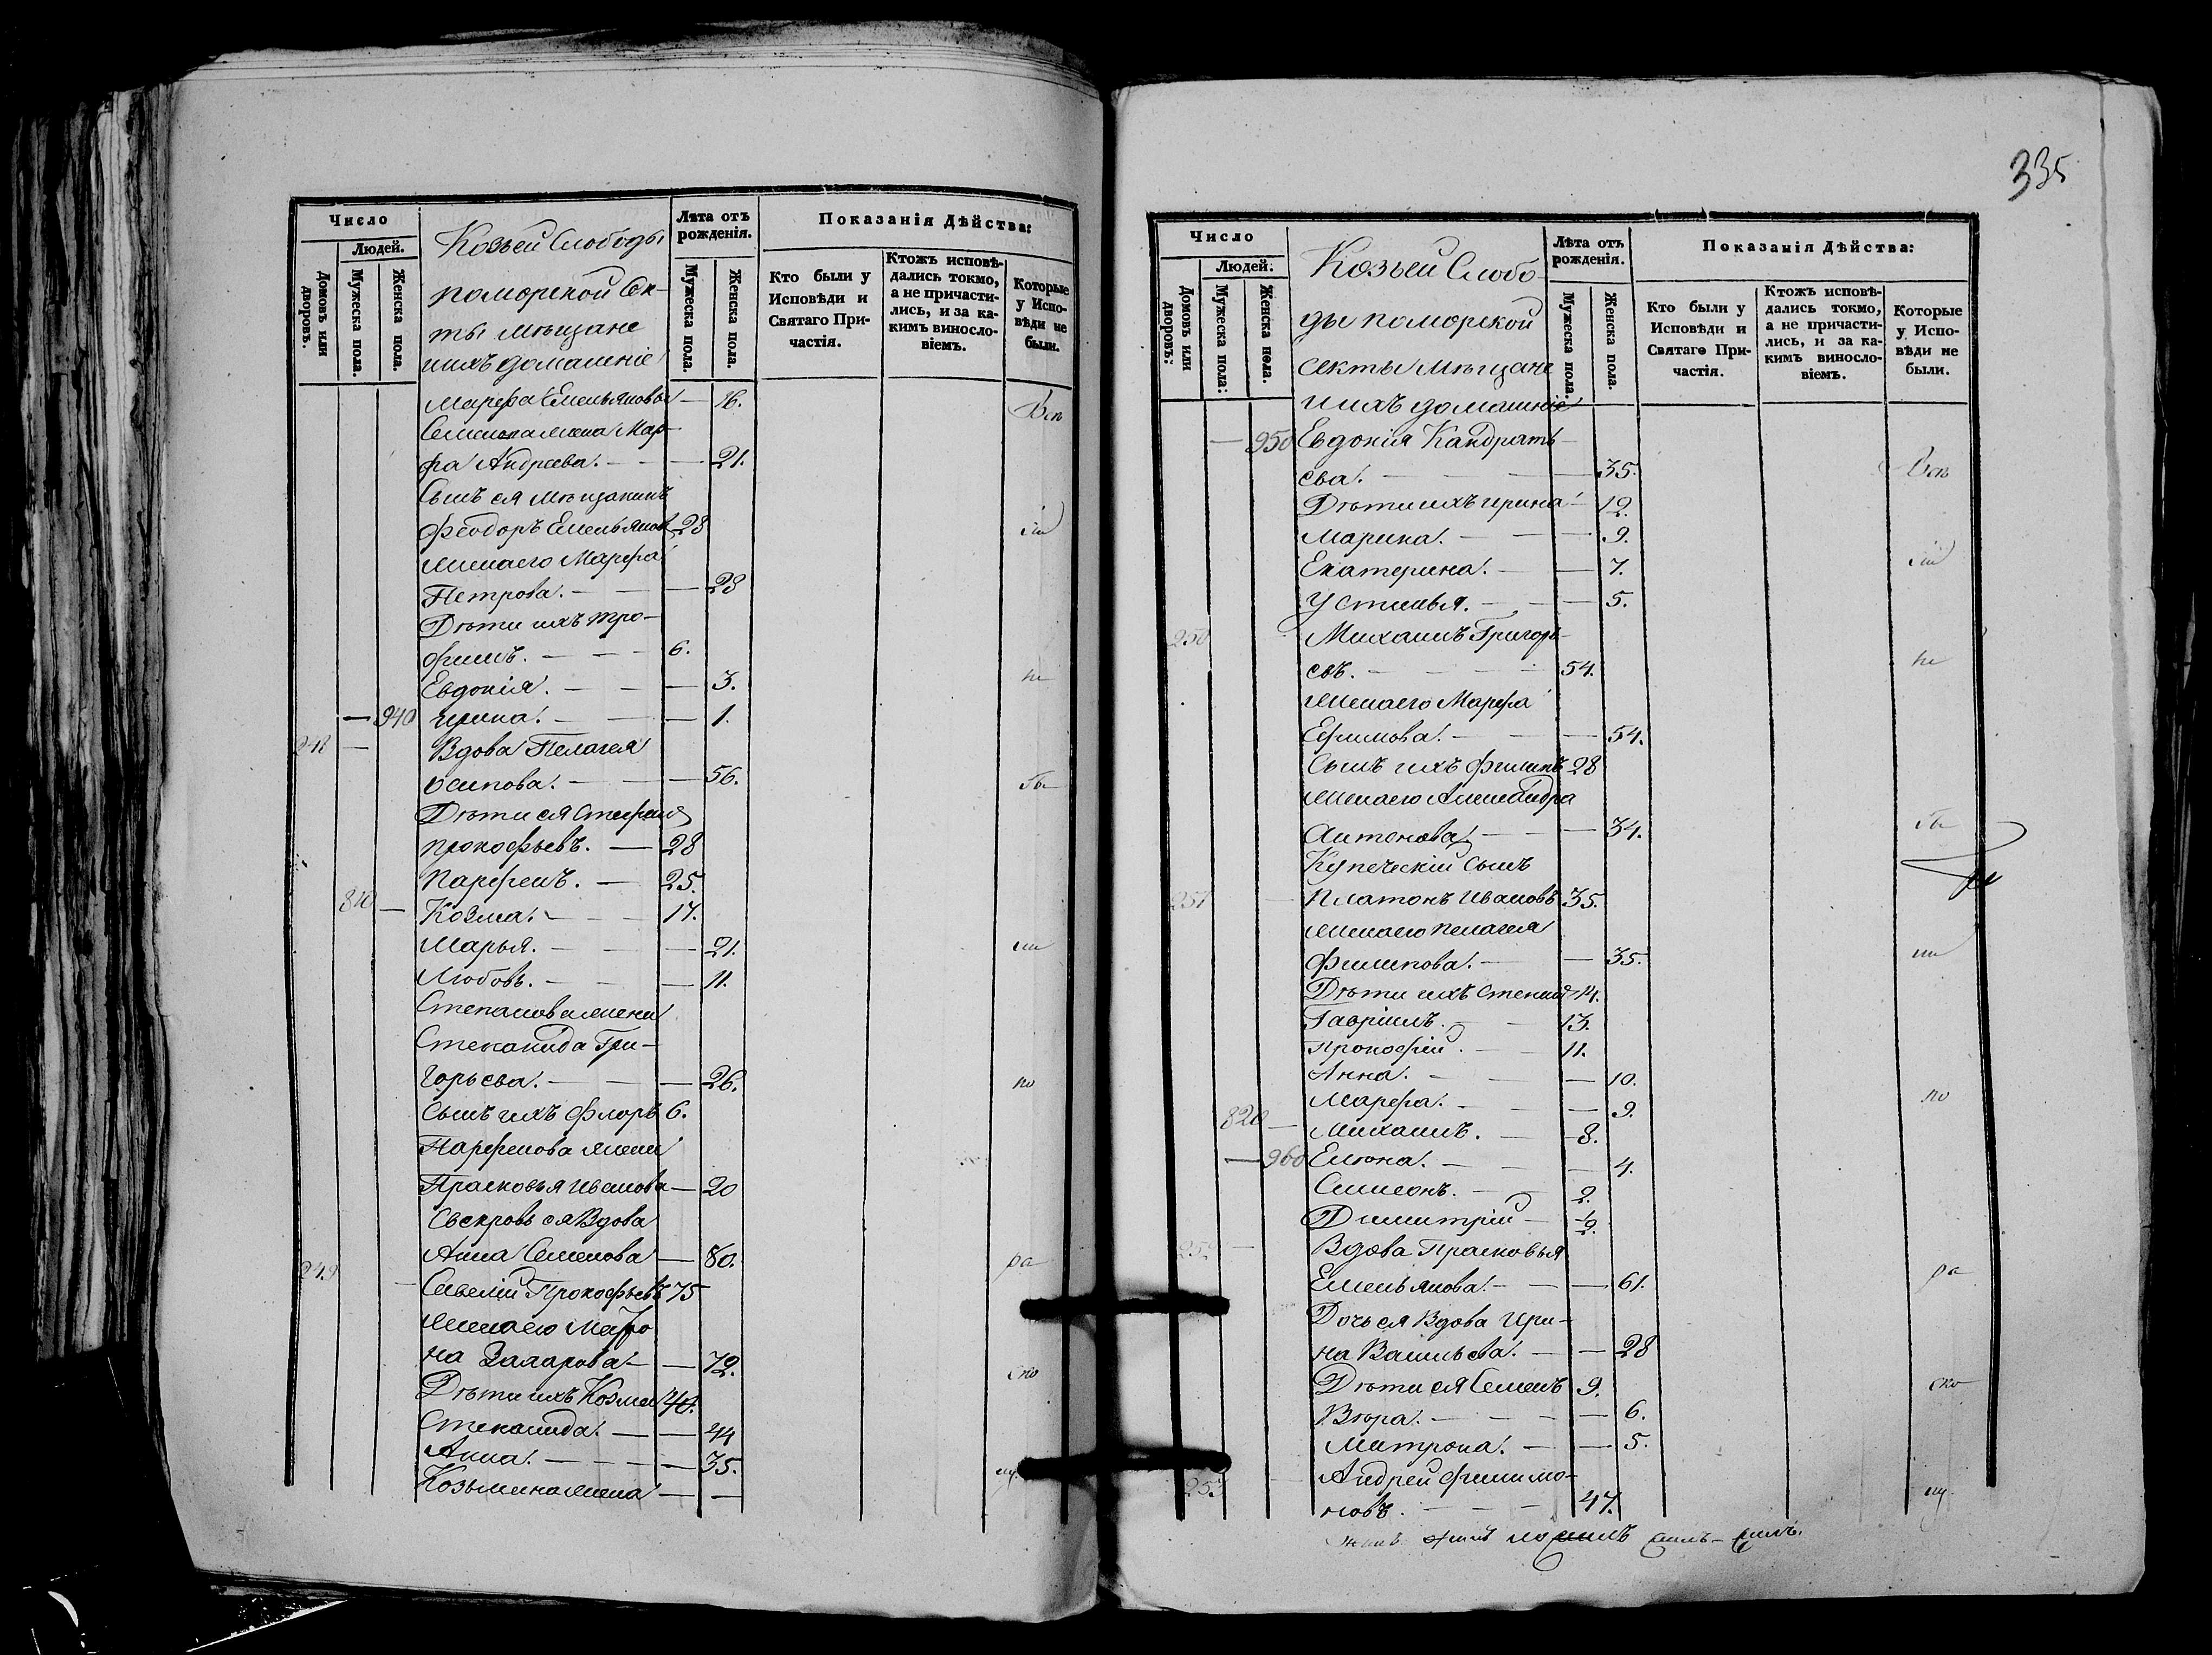 Число
Людей.
Домовъ или дворовъ.
Мужеска пола.
Женска пола.
Козьей Слободы
поморской Сек-
ты мѣщане
ихъ домашніе
Лѣта отъ рожденія.
Мужеска пола.
Женска пола.
Показанія Дѣйства:
Кто были у Исповѣди и Святаго Причастія.
Ктожъ исповѣдались токмо, а не причастились, и за какимъ винословіемъ.
Которые у Исповѣди не были.
Марфа Емельянова — 16.
Семенова жена Мар-
фа Андреева. — 21.
Сынъ ея мѣщанинъ
Феодоръ Емельяновъ 28
жена его Марфа
Петрова. — 28
Дѣти ихъ Тро-
фимъ. — 6.
Евдокія. — 3.
— 940 Ирина. — 1.
248 — Вдова Пелагея
Осипова. — 56.
Дѣти ея Стефанъ
Прокофьевъ. — 28
Парфенъ. — 25.
810 — Козма. — 17.
Марья. — 21.
Любовь. — 11.
Степанова жена
Степанида Гри-
горьева. — 26.
Сынъ ихъ Флоръ 6.
Парфенова жена
Прасковья Иванова — 20
Свекровь ея Вдова
Анна Семенова — 80.
249 Савелій Прокофьевъ 75
жена его Матро
на Захарова — 72.
Дѣти ихъ Козма 40.
Степанида. — 44
Анна. — 35.
Козьмина жена — —
Всѣ
сіи
не
бы
ли
по
ра
ско
лу.
335
Число
Людей.
Домовъ или дворовъ.
Мужеска пола.
Женска пола.
Козьей Слобо-
ды поморской
секты мѣщане
ихъ домашніе
Лѣта отъ рожденія.
Мужеска пола.
Женска пола.
Показанія Дѣйства:
Кто были у Исповѣди и Святаго Причастія.
Ктожъ исповѣдались токмо, а не причастились, и за какимъ винословіемъ.
Которые у Исповѣди не были.
— 950 Евдокія Кандрать-
ева. — 35.
Дѣти ихъ Ирина — 12.
Марина. — 9.
Екатерина. — 7.
Устинья. — 5.
250 Михаилъ Григорь-
евъ. — 54.
жена его Марфа
Ефимова. — 54.
Сынъ ихъ Филипъ 28
жена его Александра
Антонова — 34.
Купеческій сынъ
251 Платонъ Ивановъ 35.
жена его Пелагея
Филипова. — 35.
Дѣти ихъ Степанъ 14.
Гавріилъ. — 13.
Прокофій. — 11.
Анна. — 10.
Марфа. — 9.
820 — Михаилъ. — 8.
— 960 Елена. — 4.
Симеонъ. — 2.
Димитрій — ½.
252 — Вдова Прасковья
Емельянова. — 61.
Дочь ея Вдова Ири-
на Васильева. — 28
Дѣти ея Семенъ 9.
Вѣра. — 6.
Матрона. — 5.
253 Андрей Филимо-
новъ. — 47.
Всѣ
сіи
не
бы
ли
по
ра
ско
лу.